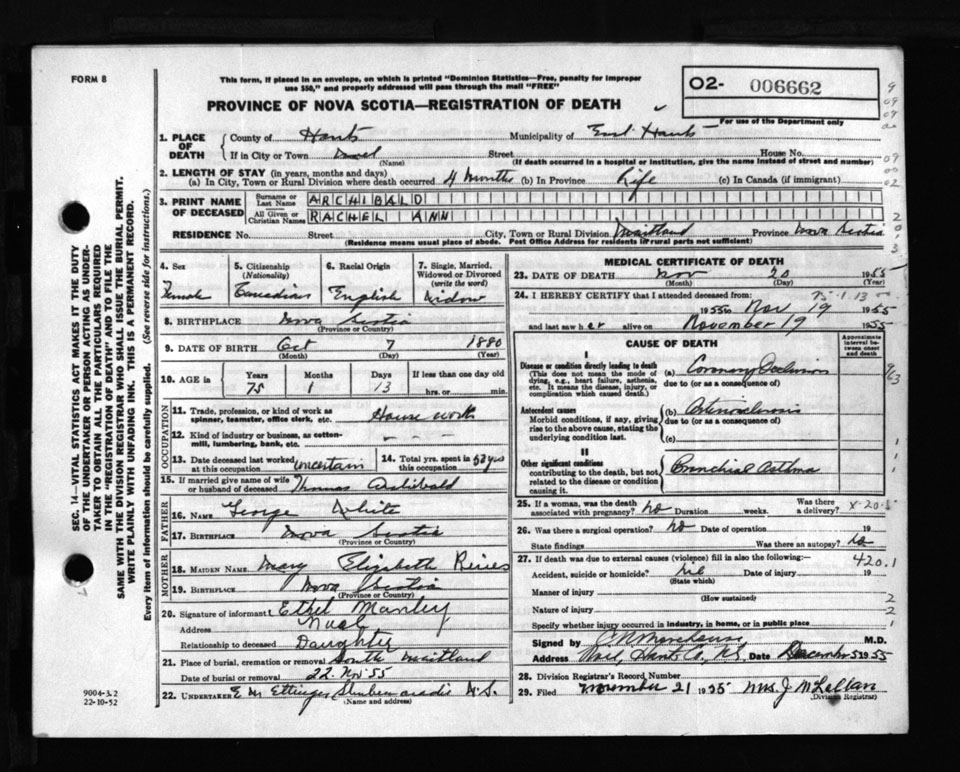 FORM 8
This form, if placed in an envelope, on which is printed "Dominion Statistics—Free, penalty for improper
use $50," and properly addressed will pass through the mail "FREE"
PROVINCE OF NOVA SCOTIA—REGISTRATION OF DEATH
O2- 006662
For use of the Department only
SEC. 14—VITAL STATISTICS ACT MAKES IT THE DUTY
OF THE UNDERTAKER OR PERSON ACTING AS UNDER-
TAKER TO OBTAIN ALL THE PARTICULARS REQUIRED
IN THE "REGISTRATION OF DEATH" AND TO FILE THE
SAME WITH THE DIVISION REGISTRAR WHO SHALL ISSUE THE BURIAL PERMIT.
WRITE PLAINLY WITH UNFADING INK. THIS IS A PERMANENT RECORD.
Every item of information should be carefully supplied. (See reverse side for instructions.)
1. PLACE OF DEATH County of Hants Municipality of East Hants
If in City or Town Noel Street House No.
(Name) (If death occurred in a hospital or institution, give the name instead of street and number)
2. LENGTH OF STAY (in years, months and days)
(a) In City, Town or Rural Division where death occurred 4 months (b) In Province Life (c) In Canada (if immigrant)
3. PRINT NAME OF DECEASED Surname or Last Name ARCHIBALD
All Given or Christian Names RACHEL ANN
RESIDENCE No. Street City, Town or Rural Division Maitland Province Nova Scotia
(Residence means usual place of abode. Post Office Address for residents in rural parts not sufficient)
4. Sex Female
5. Citizenship (Nationality) Canadian
6. Racial Origin English
7. Single, Married, Widowed or Divorced (write the word) Widow
8. BIRTHPLACE Nova Scotia
(Province or Country)
9. DATE OF BIRTH Oct 7 1880
(Month) (Day) (Year)
10. AGE in Years Months Days If less than one day old
75 1 13 hrs. or min.
OCCUPATION
11. Trade, profession, or kind of work as spinner, teamster, office clerk, etc. House work
12. Kind of industry or business, as cotton-mill, lumbering, bank, etc. - - -
13. Date deceased last worked at this occupation uncertain
14. Total yrs. spent in this occupation 52 yrs
15. If married give name of wife or husband of deceased Thomas Archibald
FATHER
16. NAME George White
17. BIRTHPLACE Nova Scotia
(Province or Country)
MOTHER
18. MAIDEN NAME Mary Elizabeth
19. BIRTHPLACE Nova Scotia
(Province or Country)
20. Signature of informant Ethel Manley
Address Noel
Relationship to deceased Daughter
21. Place of burial, cremation or removal South Maitland
Date of burial or removal 22 Nov 55
22. UNDERTAKER E M Ettinger Shubenacadie N.S.
(Name and address)
9004-3.2
22-10-52
MEDICAL CERTIFICATE OF DEATH
23. DATE OF DEATH Nov 20 1955
(Month) (Day) (Year)
24. I HEREBY CERTIFY that I attended deceased from: 75-1-13
1955 to Nov 19 1955
and last saw her alive on November 19 1955
CAUSE OF DEATH
Approximate interval between onset and death
I
Disease or condition directly leading to death
(This does not mean the mode of dying, e.g., heart failure, asthenia, etc. It means the disease, injury, or complication which caused death.)
(a) Coronary Occlusion
due to (or as a consequence of)
Antecedent causes
Morbid conditions, if any, giving rise to the above cause, stating the underlying condition last.
(b) Arteriosclerosis
due to (or as a consequence of)
(c)
II
Other significant conditions
contributing to the death, but not related to the disease or condition causing it.
Bronchial Asthma
25. If a woman, was the death associated with pregnancy? No Duration weeks. Was there a delivery?
26. Was there a surgical operation? No Date of operation 19
State findings Was there an autopsy? No
27. If death was due to external causes (violence) fill in also the following:— 420.1
Accident, suicide or homicide? Nil Date of injury 19
(State which)
Manner of injury
(How sustained)
Nature of injury
Specify whether injury occurred in industry, in home, or in public place
Signed by M.D.
Address Noel, Hants Co. N.S. Date December 5 1955
28. Division Registrar's Record Number
29. Filed November 21 1955 Mrs. J McLellan
(Division Registrar)